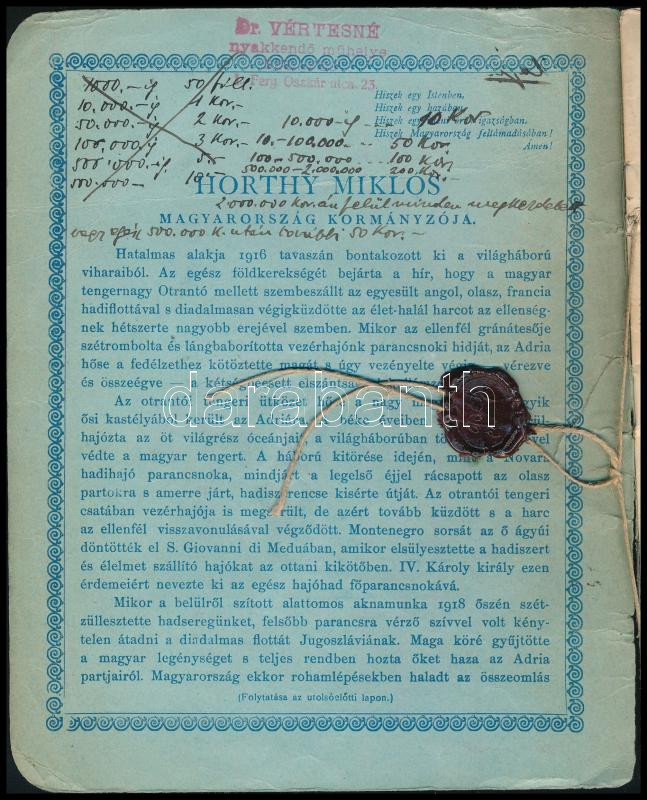 Dr. VÉRTESNÉ
nyakkendő műhelye
Ferg. Oszkár utca. 23.
Hiszek egy Istenben,
Hiszek egy hazában,
Hiszek egy isteni örök igazságban,
Hiszek Magyarország feltámadásában!
Ámen!
1000.-ig 50 fill.
10.000.- 1 Kor.-
50.000.- 2 Kor.- 10.000-ig 10 Kor
100.000 3 Kor. 10.-100.000.- 50 Kor.
500.000.-ig 5.- 100-500.000 100 Kor.
500.000- 10.- 500.000-2,000.000 200 Kor.
HORTHY MIKLÓS
2,000.000 koronán felül minden megkezdett
MAGYARORSZÁG KORMÁNYZÓJA.
vagy egész 500.000 K. után további 50 Kor.-
Hatalmas alakja 1916 tavaszán bontakozott ki a világháború
viharaiból. Az egész földkerekségét bejárta a hír, hogy a magyar
tengernagy Otrantó mellett szembeszállt az egyesült angol, olasz, francia
hadiflottával s diadalmasan végigküzdötte az élet-halál harcot az ellenség-
nek hétszerte nagyobb erejével szemben. Mikor az ellenfél gránátesője
szétrombolta és lángbaborította vezérhajónk parancsnoki hidját, az Adria
hőse a fedélzethez kötöztette magát s úgy vezényelte vérezve
és összeégve
Az otrantói tengeri ütközet a nagy
ősi kastélyából került az Adriára. A béke éveiben
hajózta az öt világrész óceánjait, a világháborúban
védte a magyar tengert. A háború kitörése idején, mint a Novara
hadihajó parancsnoka, mindjárt a legelső éjjel rácsapott az olasz
partokra s amerre járt, hadiszerencse kisérte útját. Az otrantói tengeri
csatában vezérhajója is megsérült, de azért tovább küzdött s a harc
az ellenfél visszavonulásával végződött. Montenegro sorsát az ő ágyúi
döntötték el S. Giovanni di Meduában, amikor elsülyesztette a hadiszert
és élelmet szállító hajókat az ottani kikötőben. IV. Károly király ezen
érdemeiért nevezte ki az egész hajóhad főparancsnokává.
Mikor a belülről szított alattomos aknamunka 1918 őszén szét-
züllesztette hadseregünket, felsőbb parancsra vérző szívvel volt kény-
telen átadni a diadalmas flottát Jugoszláviának. Maga köré gyűjtötte
a magyar legénységet s teljes rendben hozta őket haza az Adria
partjairól. Magyarország ekkor rohamlépésekben haladt az összeomlás
(Folytatása az utolsóelőtti lapon.)
darabanth